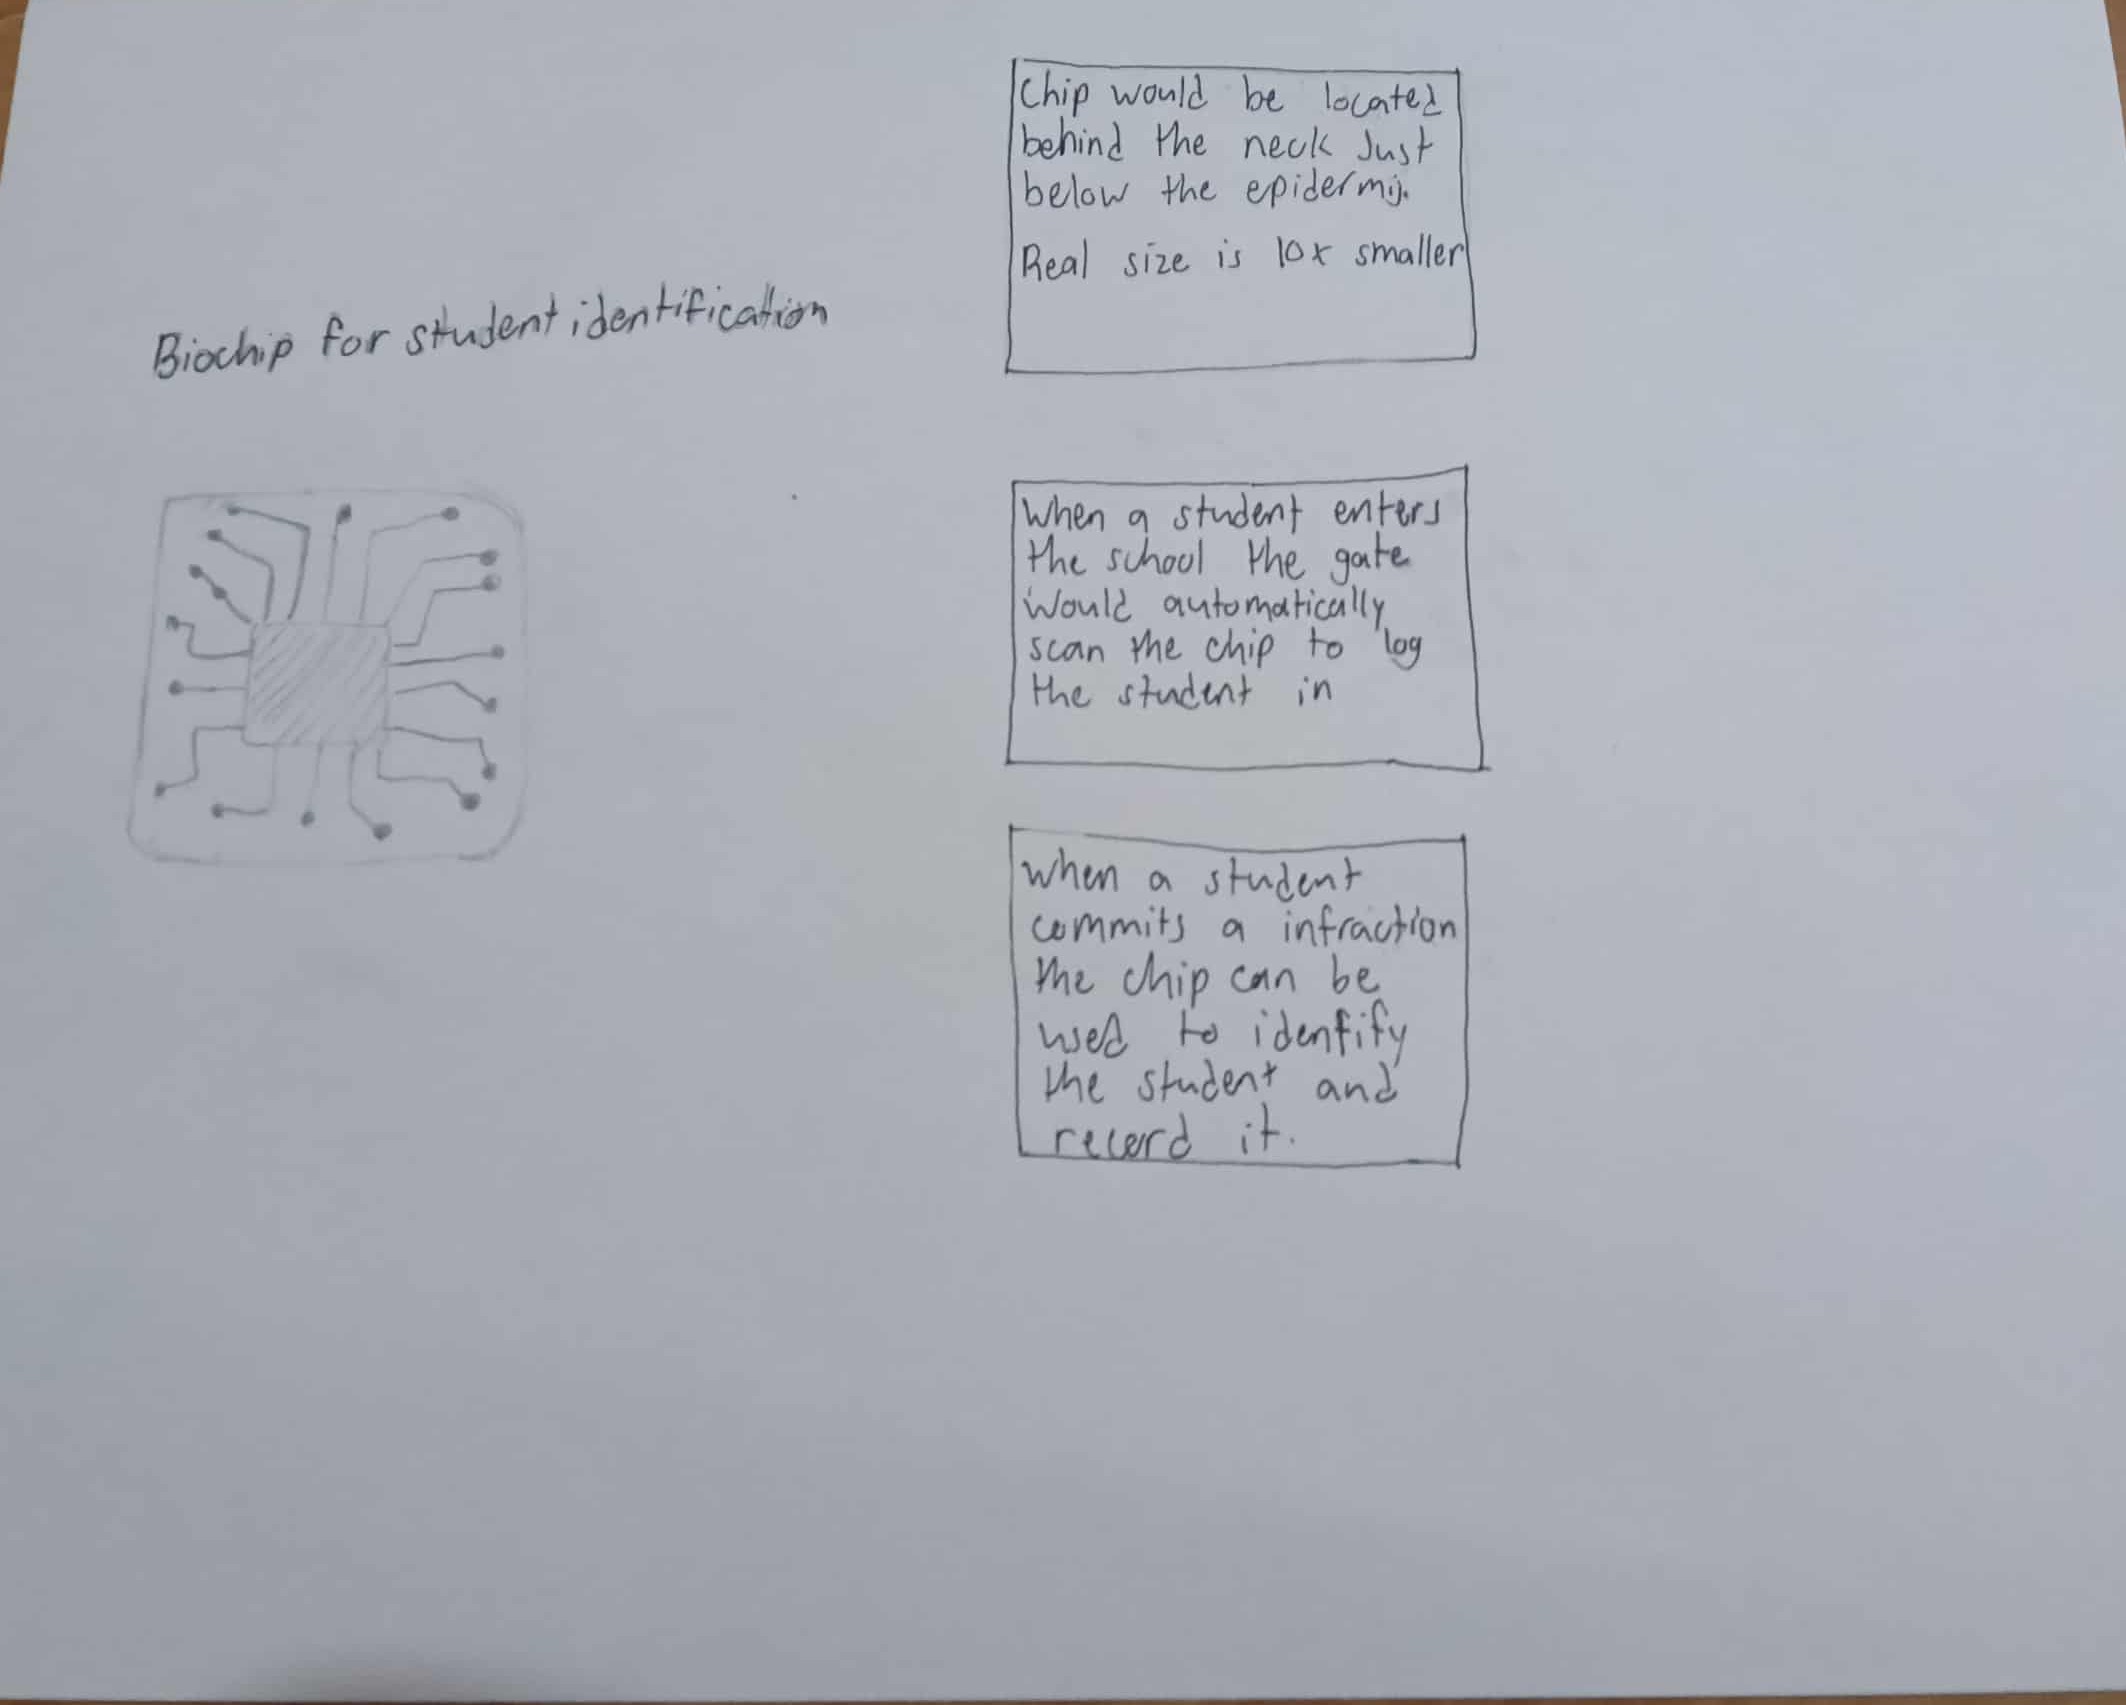 Biochip for student identification
Chip would be located
behind the neck Just
below the epidermis.
Real size is 10x smaller
When a student enters
the school the gate
would automatically
scan the chip to log
the student in
When a student
commits a infraction
the chip can be
used to identify
the student and
record it.